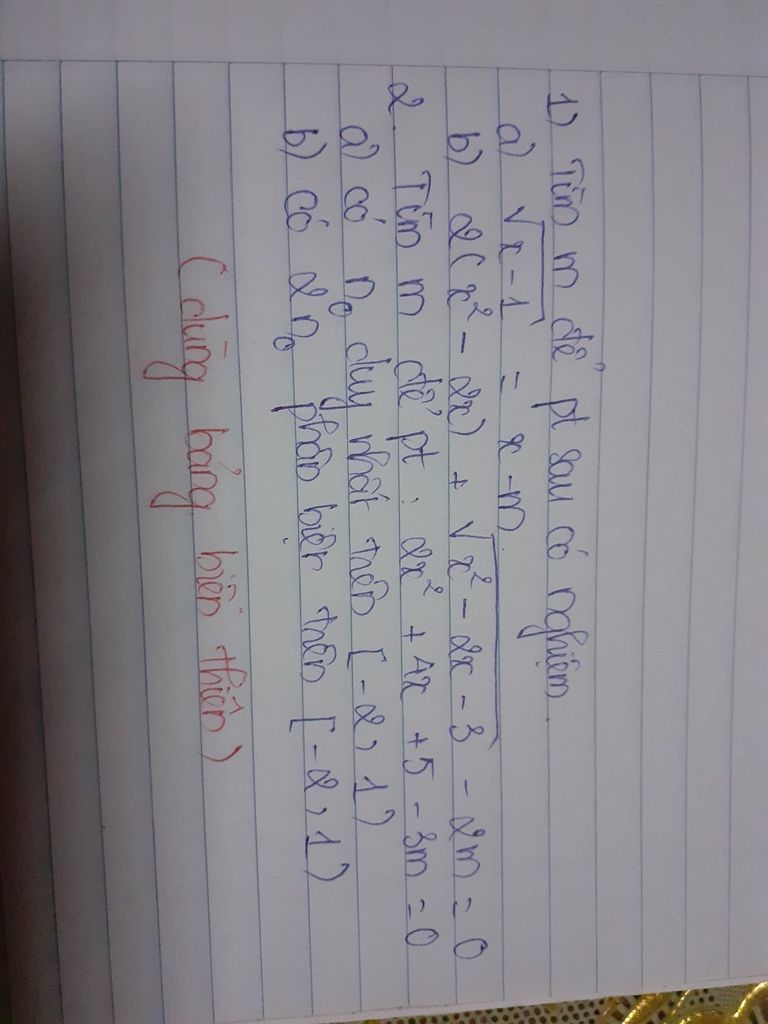 1) Tìm m để pt sau có nghiệm.
a) √x-1 = x-m.
b) 2(x² - 2x) + √x² - 2x - 3 - 2m = 0
2. Tìm m để pt : 2x² + 4x + 5 - 3m = 0
a) có n₀ duy nhất trên [-2, 1)
b) có 2n₀ phân biệt trên [-2, 1)
(dùng bảng biến thiên)